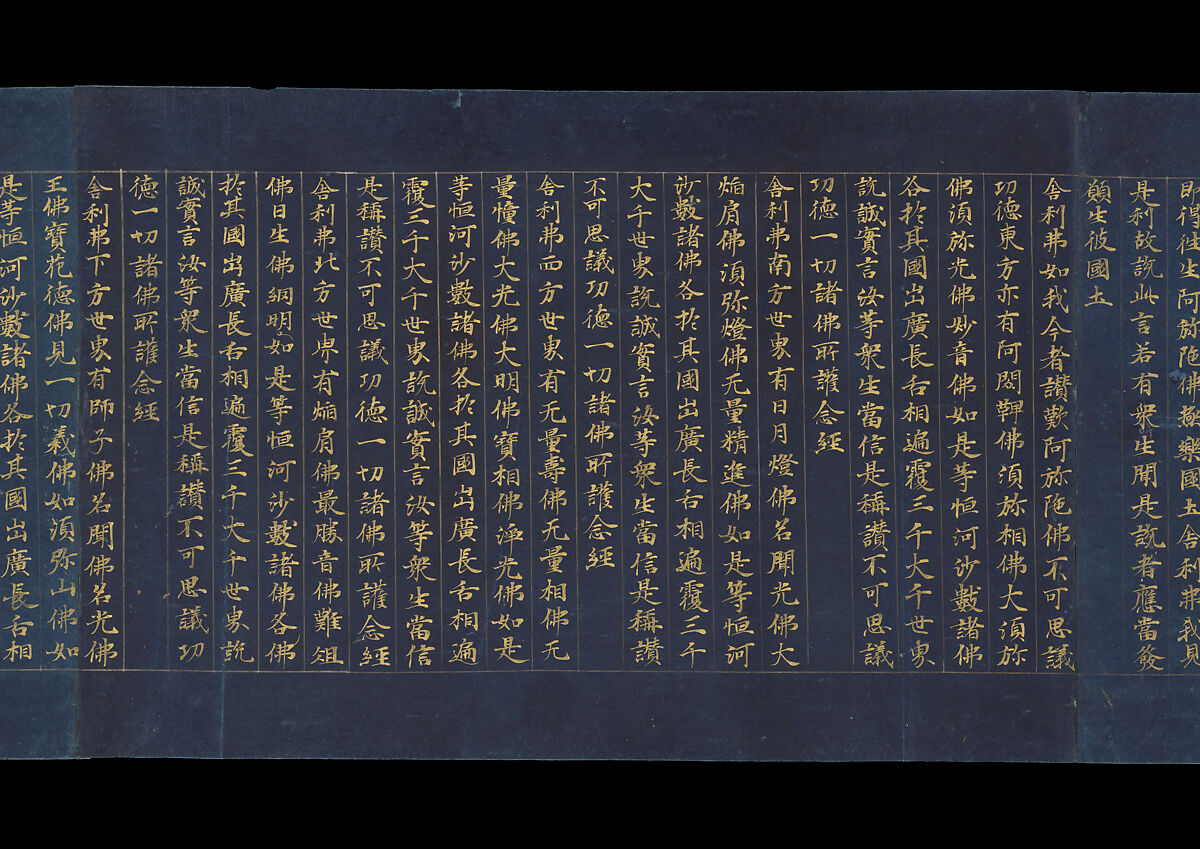 即得往生阿弥陁佛極樂國土舎利弗我見
是利故說此言若有衆生聞是說者應當發
願生彼國土
舎利弗如我今者讃歎阿弥陁佛不可思議
功德東方亦有阿閦鞞佛須弥相佛大須弥
佛須弥光佛妙音佛如是等恒河沙數諸佛
各於其國出廣長舌相遍覆三千大千世界
說誠實言汝等衆生當信是稱讃不可思議
功德一切諸佛所護念經
舎利弗南方世界有日月燈佛名聞光佛大
焔肩佛須弥燈佛无量精進佛如是等恒河
沙數諸佛各於其國出廣長舌相遍覆三千
大千世界說誠實言汝等衆生當信是稱讃
不可思議功德一切諸佛所護念經
舎利弗西方世界有无量壽佛无量相佛无
量憧佛大光佛大明佛寶相佛淨光佛如是
等恒河沙數諸佛各於其國出廣長舌相遍
覆三千大千世界說誠實言汝等衆生當信
是稱讃不可思議功德一切諸佛所護念經
舎利弗北方世界有焔肩佛最勝音佛難俎
佛日生佛網明佛如是等恒河沙數諸佛各
於其國出廣長舌相遍覆三千大千世界說
誠實言汝等衆生當信是稱讃不可思議功
德一切諸佛所護念經
舎利弗下方世界有師子佛名聞佛名光佛
王佛寶花德佛見一切義佛如須弥山佛如
是等恒河沙數諸佛各於其國出廣長舌相